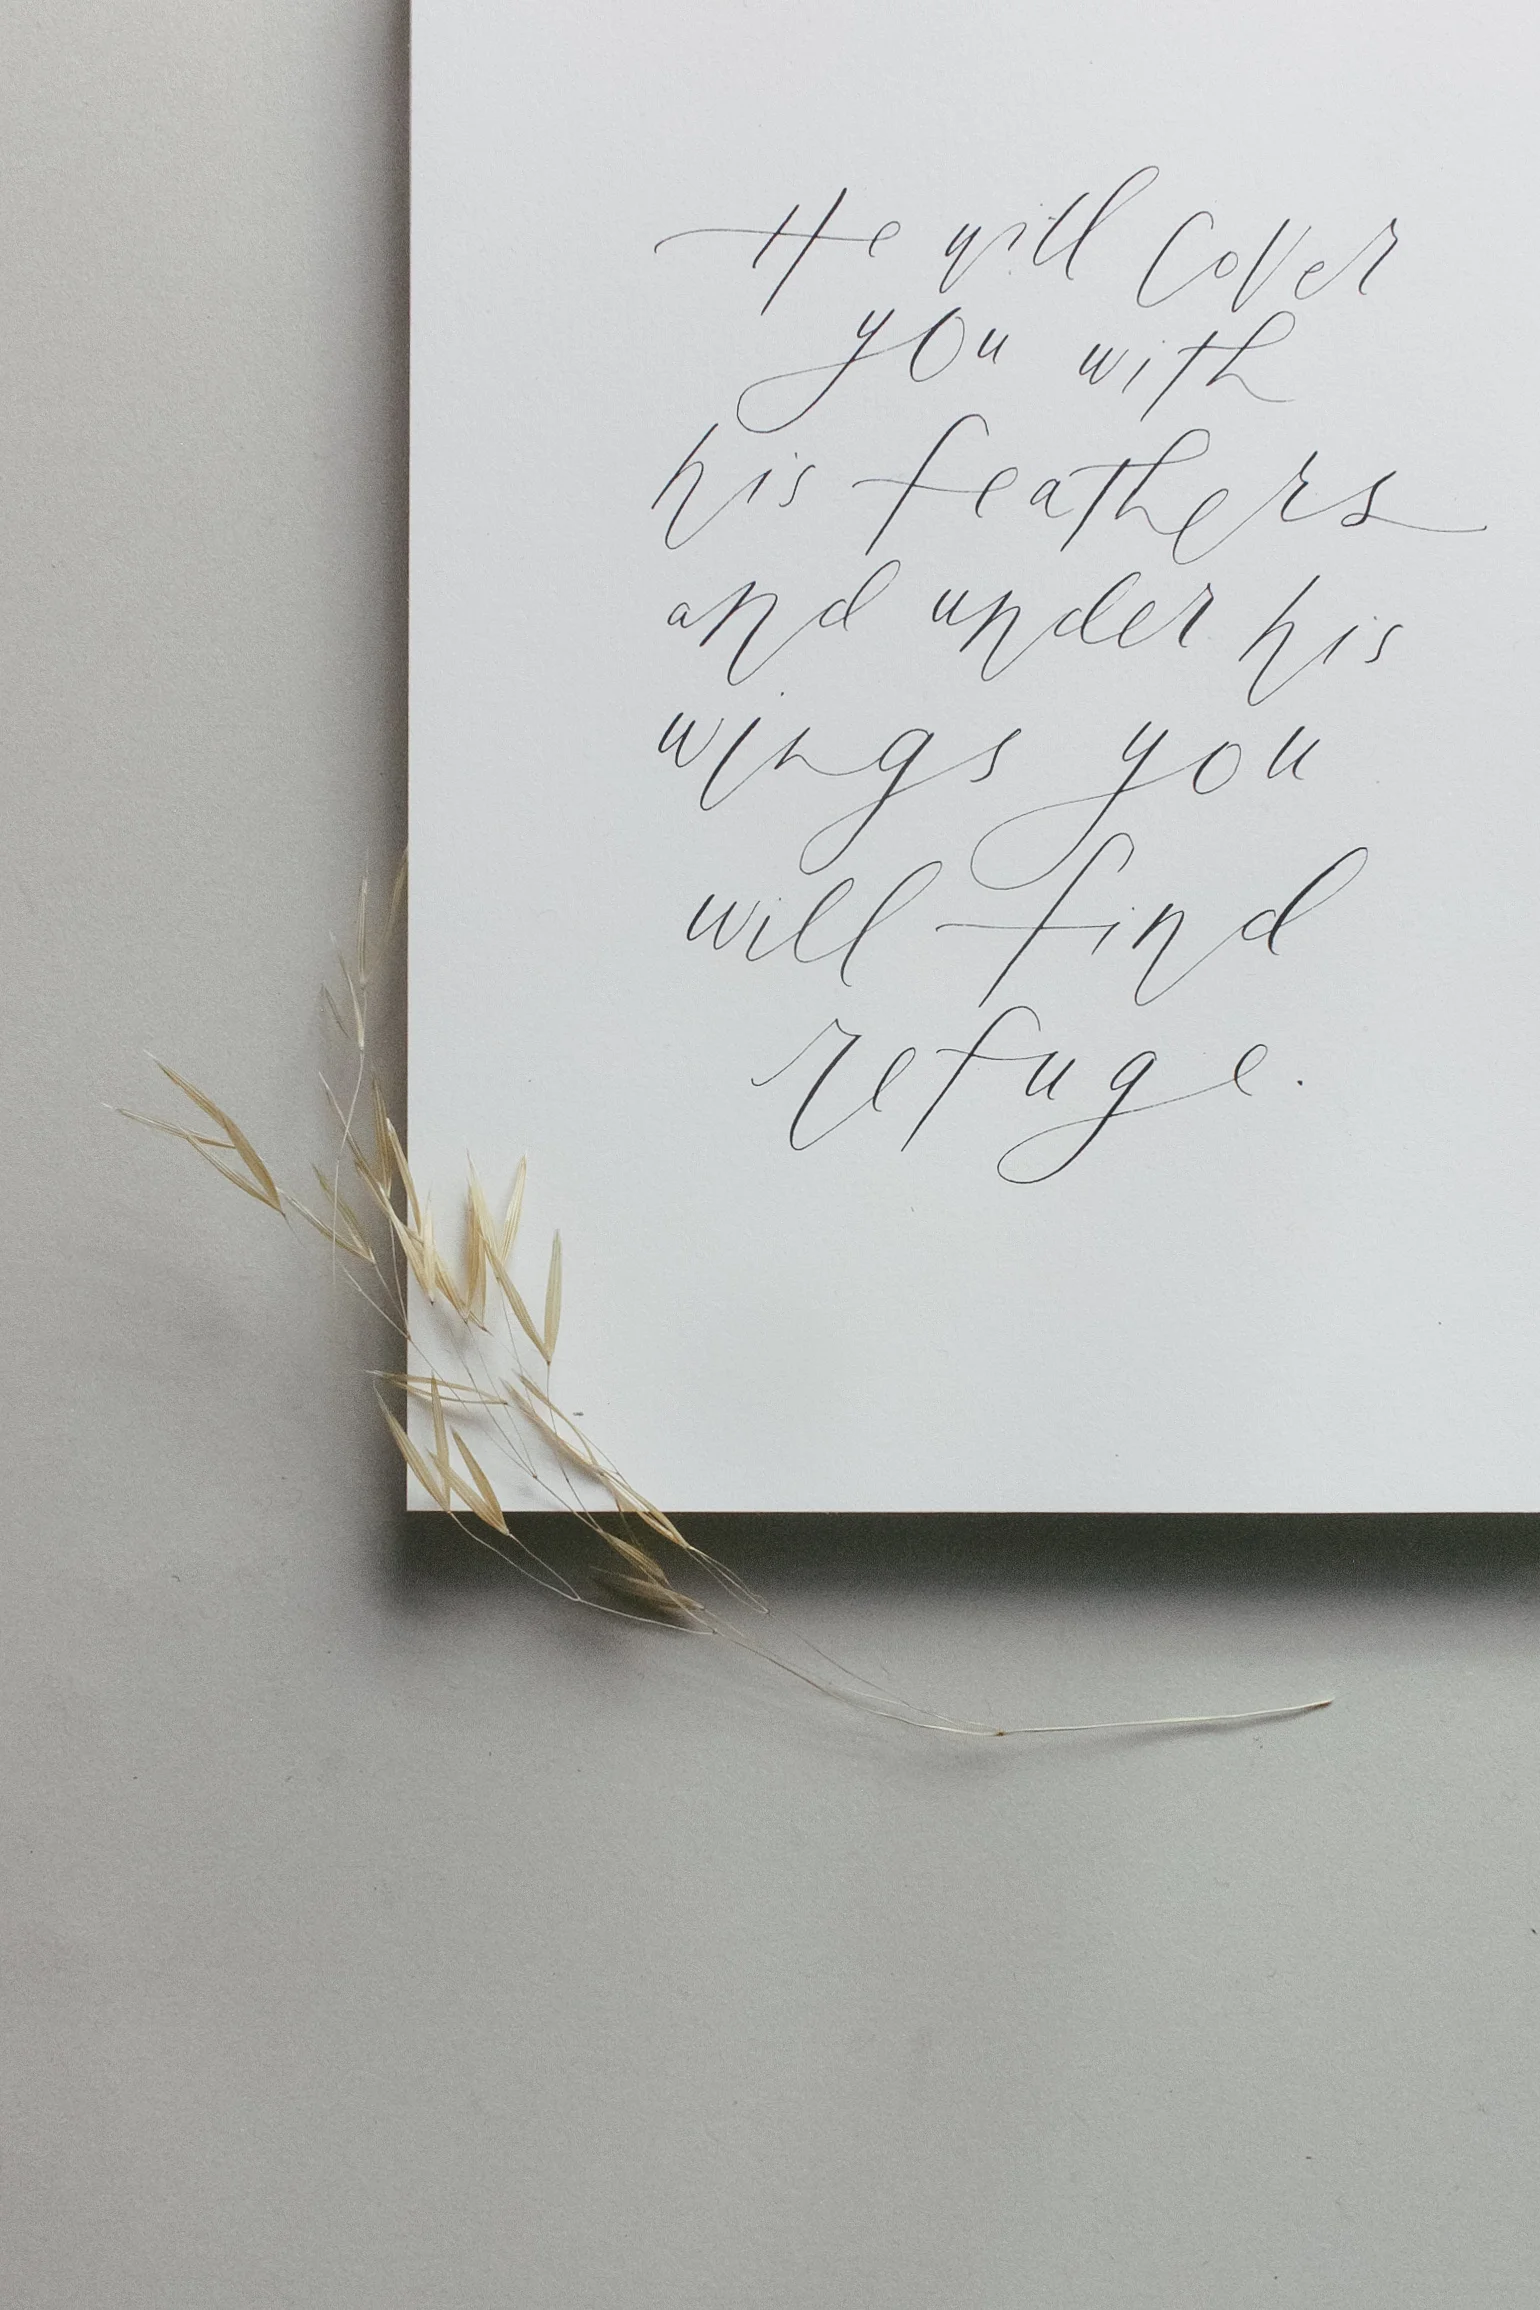 He will cover
you with
his feathers
and under his
wings you
will find
refuge.